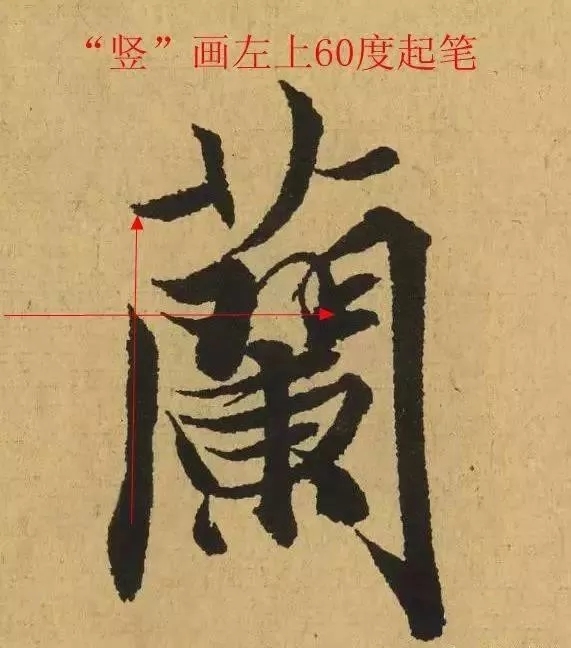 “竖”画左上60度起笔
蘭